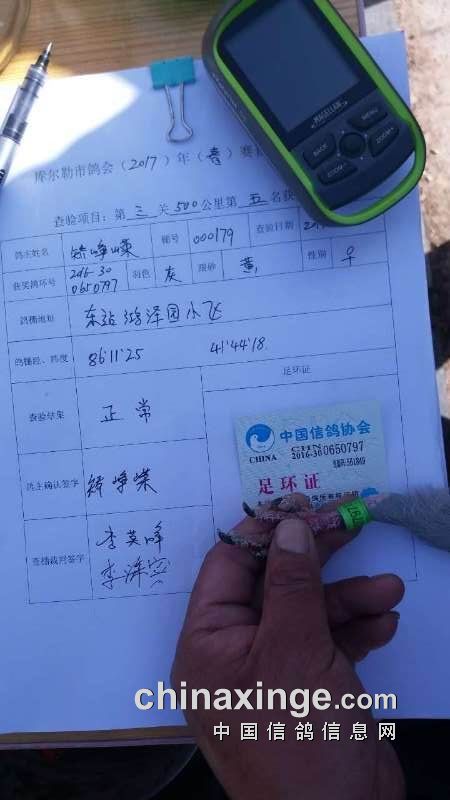 MAGELLAN
BACK
MENU
ZOOM-
ZOOM+
库尔勒市鸽会(2017)年(春)赛
查验项目:第三关500公里第五名获
鸽主姓名
棚号 000179 查验日期
获奖鸽环号 2016-30 0650797 羽色 灰 眼砂 黄 性别 ♀
鸽棚地址 东站鸿泽园小飞
鸽棚经、纬度 86°11'25 41°44'18.
足环证
查验结果 正常
鸽主确认签字
查棚裁判签字 李英峰
中国信鸽协会
CHINA CHN
2016-30 0650797
足环证
chinaxinge.com
中国信鸽信息网